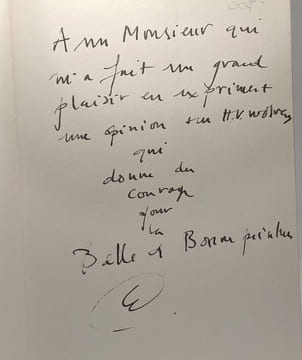 A un Monsieur qui
m'a fait un grand
plaisir en exprimant
une opinion sur H.V.
qui
donne du
courage
pour
la
Belle et Bonne peinture